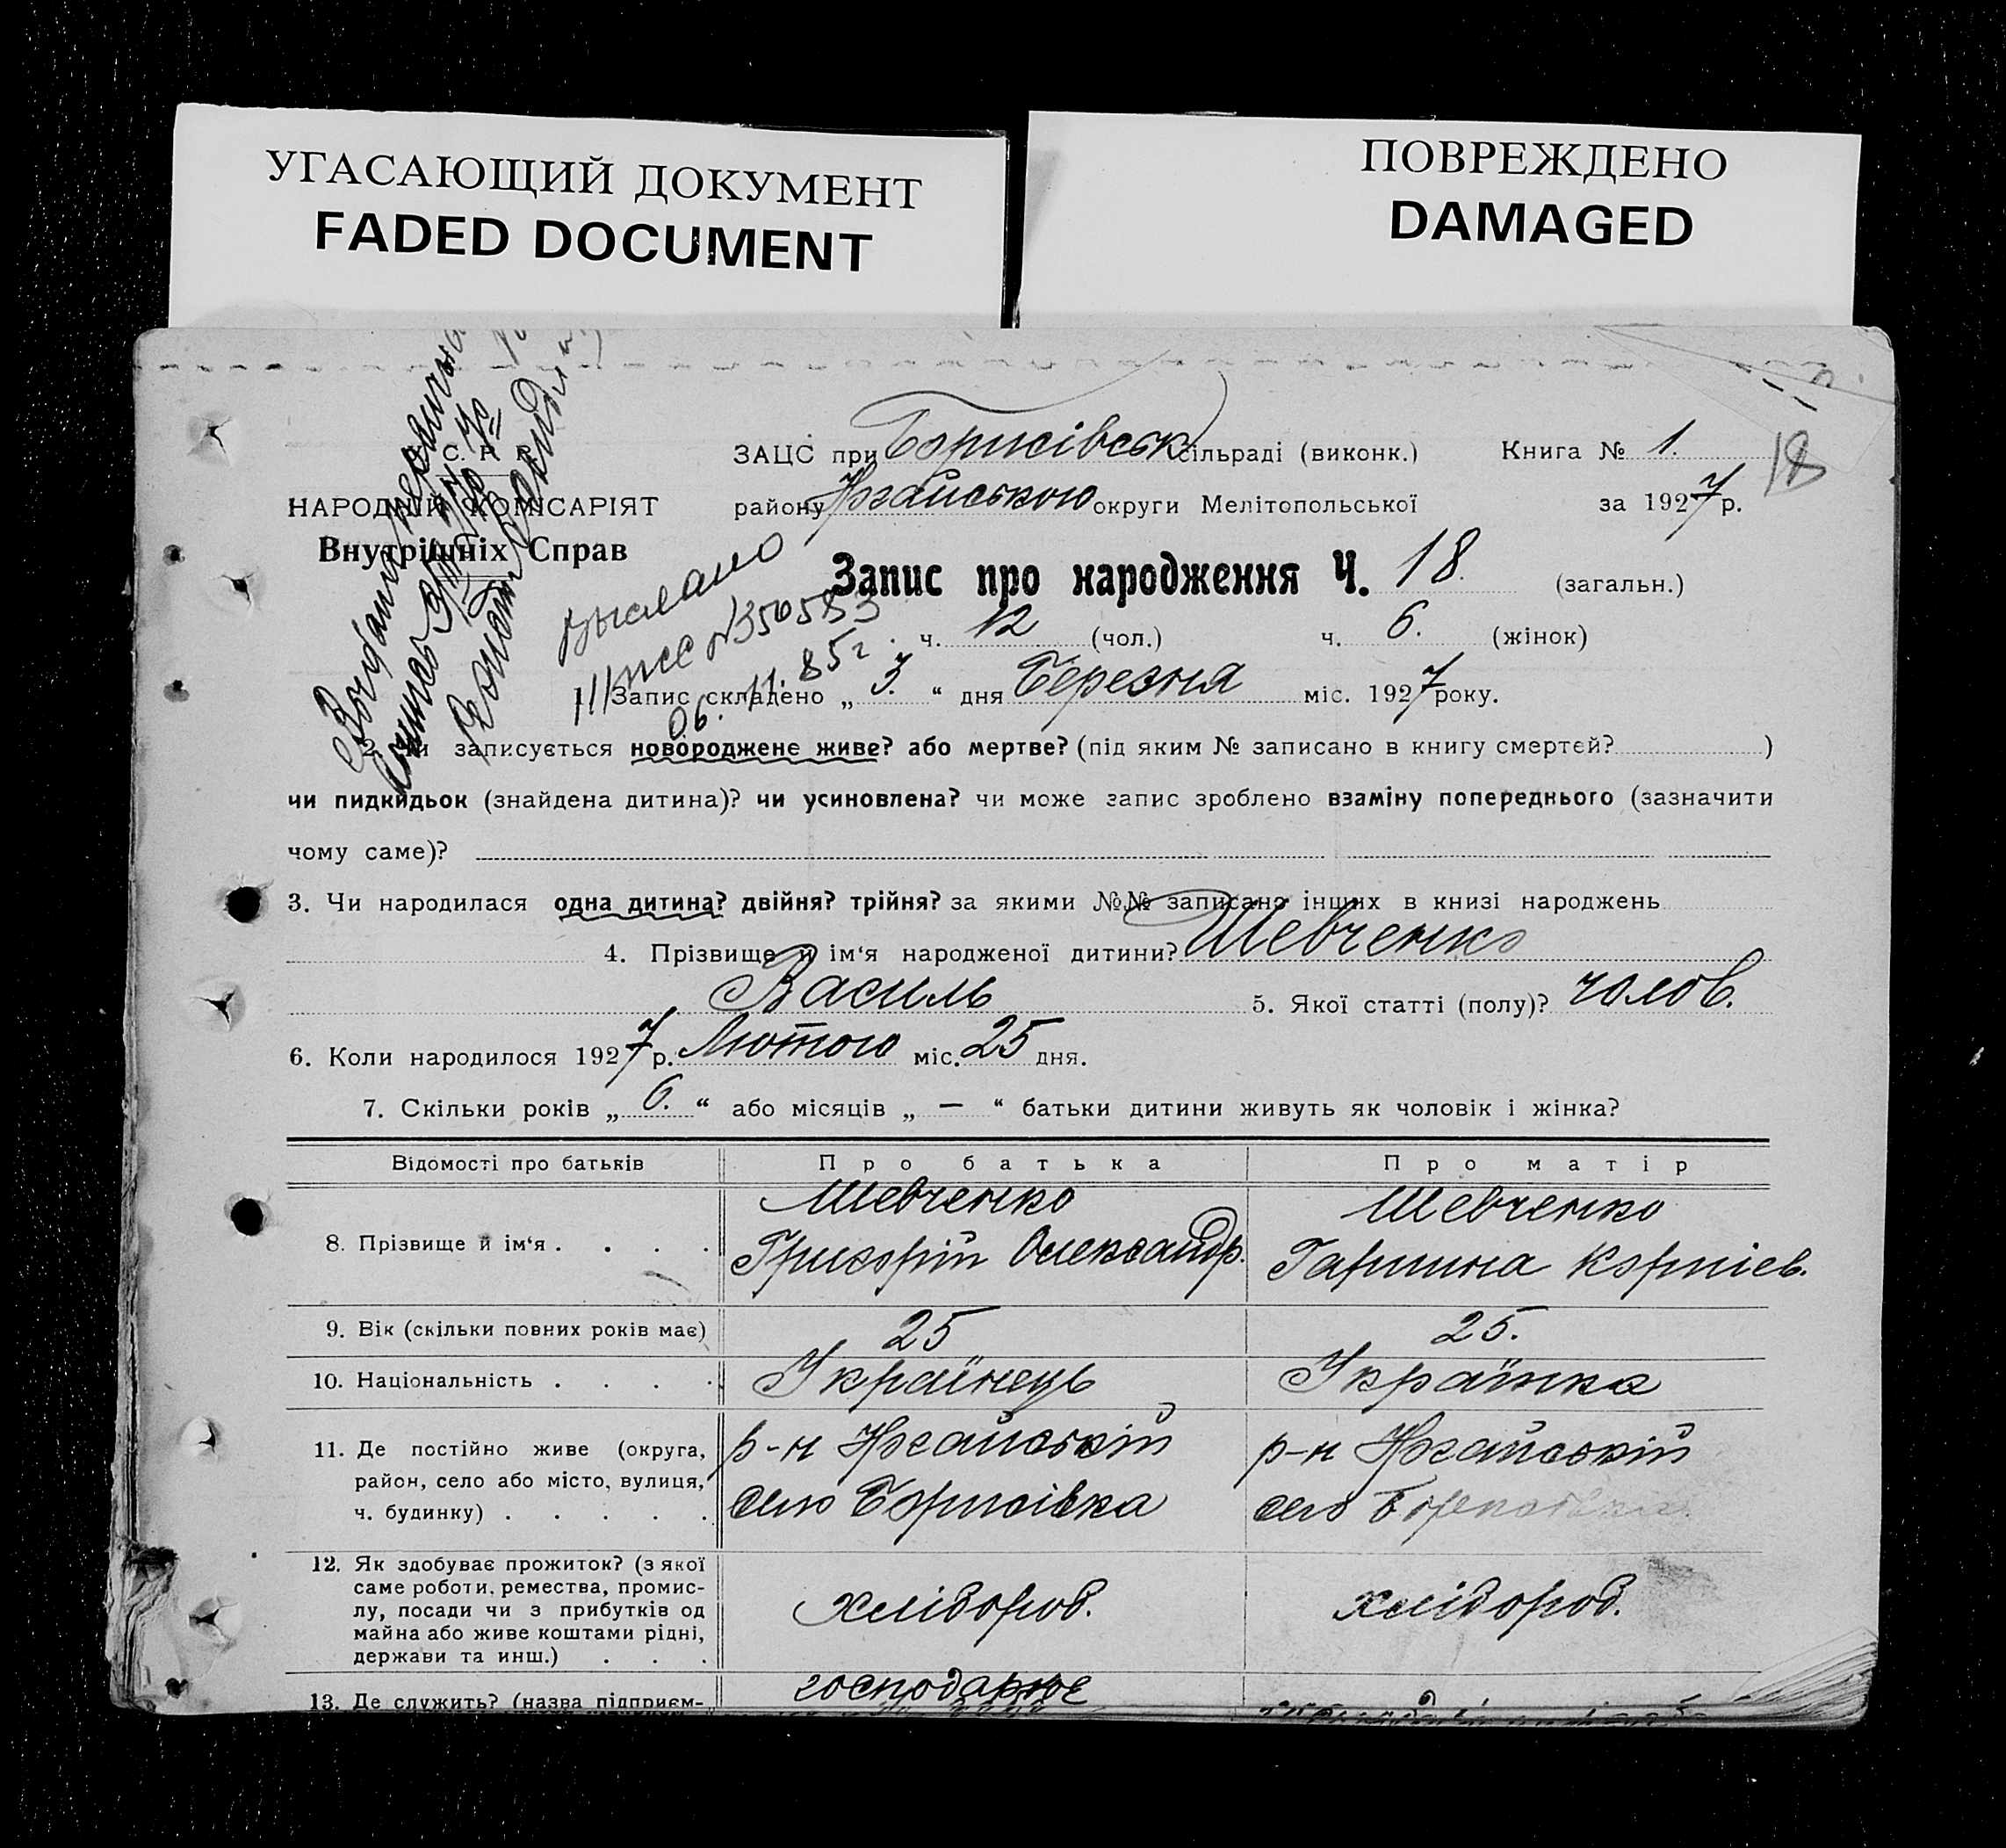 УГАСАЮЩИЙ ДОКУМЕНТ
FADED DOCUMENT
ПОВРЕЖДЕНО
DAMAGED
НАРОДНИЙ КОМІСАРІЯТ
Внутрішніх Справ
ЗАЦС при Борисівськ сільраді (виконк.) Книга № 1.
району Ногайською округи Мелітопольської за 1927 р.
18
Запис про народження Ч. 18. (загальн.)
ч. 12 (чол.) ч. 6. (жінок)
выслано
06. 11. 85г.
Запис складено „ 3. “ дня Березня міс. 1927 року.
записується новороджене живе? або мертве? (під яким № записано в книгу смертей? )
чи пидкидьок (знайдена дитина)? чи усиновлена? чи може запис зроблено взаміну попереднього (зазначити
чому саме)?
3. Чи народилася одна дитина? двійня? трійня? за якими №№ записано інших в книзі народжень
4. Прізвище й ім‘я народженої дитини? Шевченко
Василь 5. Якої статті (полу)? чолов.
6. Коли народилося 1927 р. Лютого міс. 25 дня.
7. Скільки років „ 6. “ або місяців „ — “ батьки дитини живуть як чоловік і жінка?
Відомості про батьків Про батька Про матір
8. Прізвище й ім‘я . . . . Шевченко Григорій Олександр. Шевченко Гарпина Корніев.
9. Вік (скільки повних років має) 25 25.
10. Національність . . . . Українець Українка
11. Де постійно живе (округа, р-н Ногайській р-н Ногайській
район, село або місто, вулиця, село Борисівка село Борисівка
ч. будинку) . . . . .
12. Як здобуває прожиток? (з якої
саме роботи, ремества, промис-
лу, посади чи з прибутків од хлібороб. хлібороб.
майна або живе коштами рідні,
держави та инш.) . . .
13. Де служить? (назва підприєм- господарює